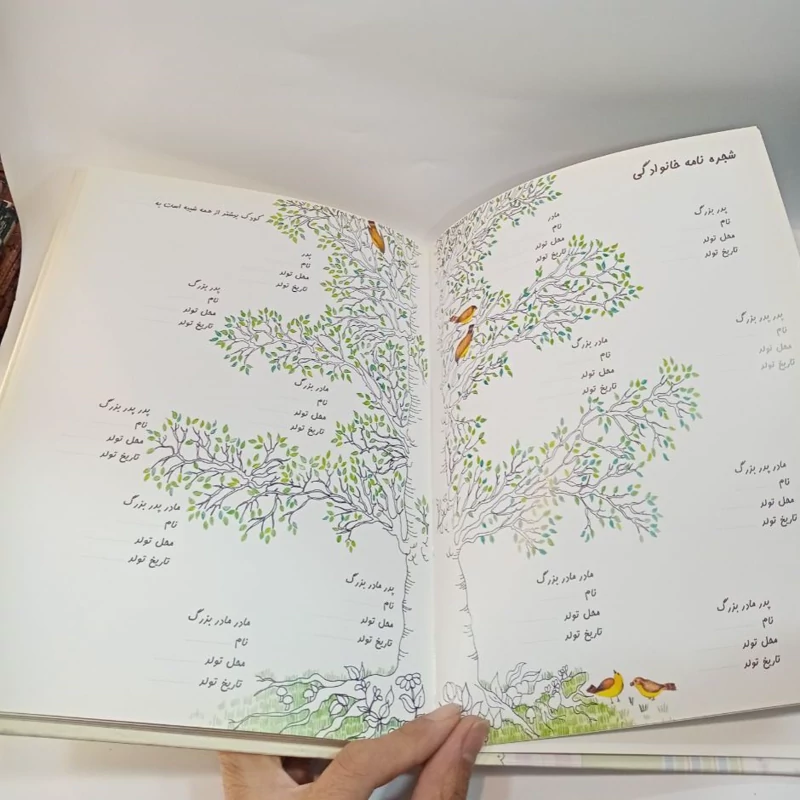 شجره نامه خانوادگی
پدر بزرگ
نام
محل تولد
تاریخ تولد
مادر
نام
محل تولد
تاریخ تولد
پدر پدر بزرگ
نام
محل تولد
تاریخ تولد
مادر بزرگ
نام
محل تولد
تاریخ تولد
مادر پدر بزرگ
نام
محل تولد
تاریخ تولد
پدر مادر بزرگ
نام
محل تولد
تاریخ تولد
مادر مادر بزرگ
نام
محل تولد
تاریخ تولد
کودک بیشتر از همه شبیه است به
پدر
نام
محل تولد
تاریخ تولد
پدر بزرگ
نام
محل تولد
تاریخ تولد
مادر بزرگ
نام
محل تولد
تاریخ تولد
پدر پدر بزرگ
نام
محل تولد
تاریخ تولد
مادر پدر بزرگ
نام
محل تولد
تاریخ تولد
پدر مادر بزرگ
نام
محل تولد
تاریخ تولد
مادر مادر بزرگ
نام
محل تولد
تاریخ تولد